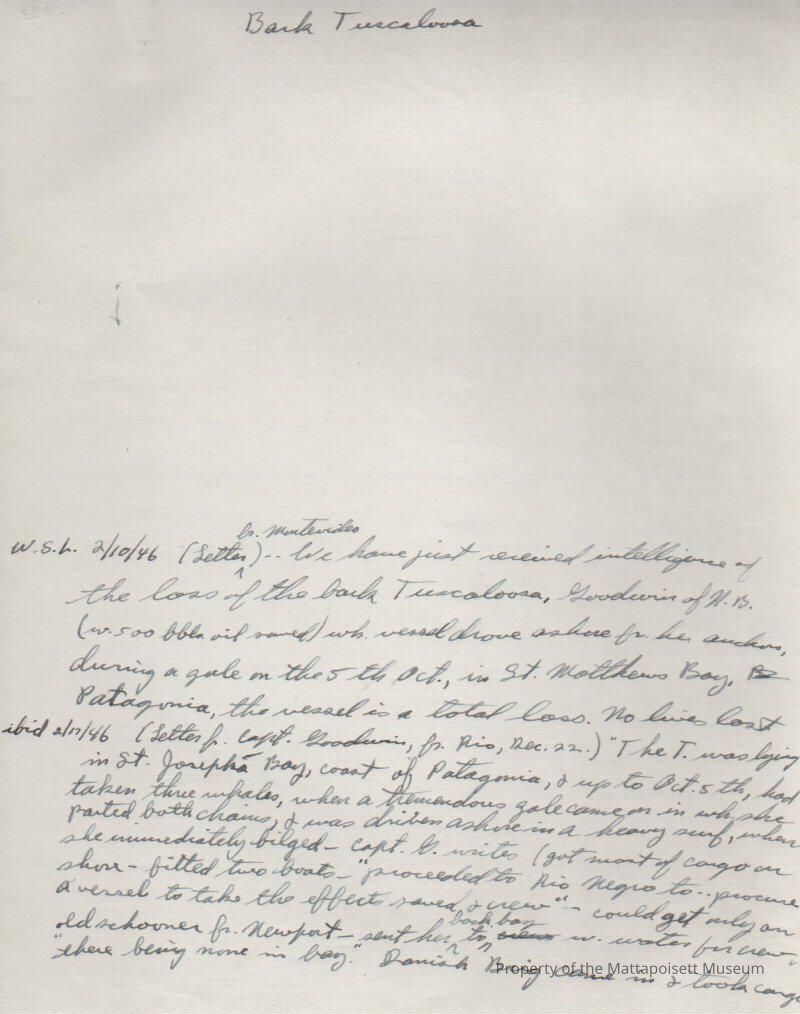 Bark Tuscaloosa
fr. Montevideo
W.S.L. 2/10/46 (Letter) -- We have just received intelligence of
the loss of the bark Tuscaloosa, Goodwin of N.B.
(w. 500 bbls. oil saved) wh. vessel drove ashore fr. her anchors,
during a gale on the 5th Oct., in St. Matthews Bay,
Patagonia, the vessel is a total loss. No lives lost
ibid 2/17/46 (Letter fr. Capt. Goodwin, fr. Rio, Dec. 22.) "The T. was lying
in St. Josephs Bay, coast of Patagonia, & up to Oct. 5th, had
taken three whales, when a tremendous gale came on in wh. she
parted both chains, & was driven ashore in a heavy surf, when
she immediately bilged - capt. G. writes (got most of cargo on
shore - fitted two boats - "proceeded to Rio Negro to .. procure
a vessel to take the effects saved, & crew" - could get only an
old schooner fr. Newport - sent her to back bay w. water for crew,
"there being none in bay." Danish Brig came in & took cargo
Property of the Mattapoisett Museum